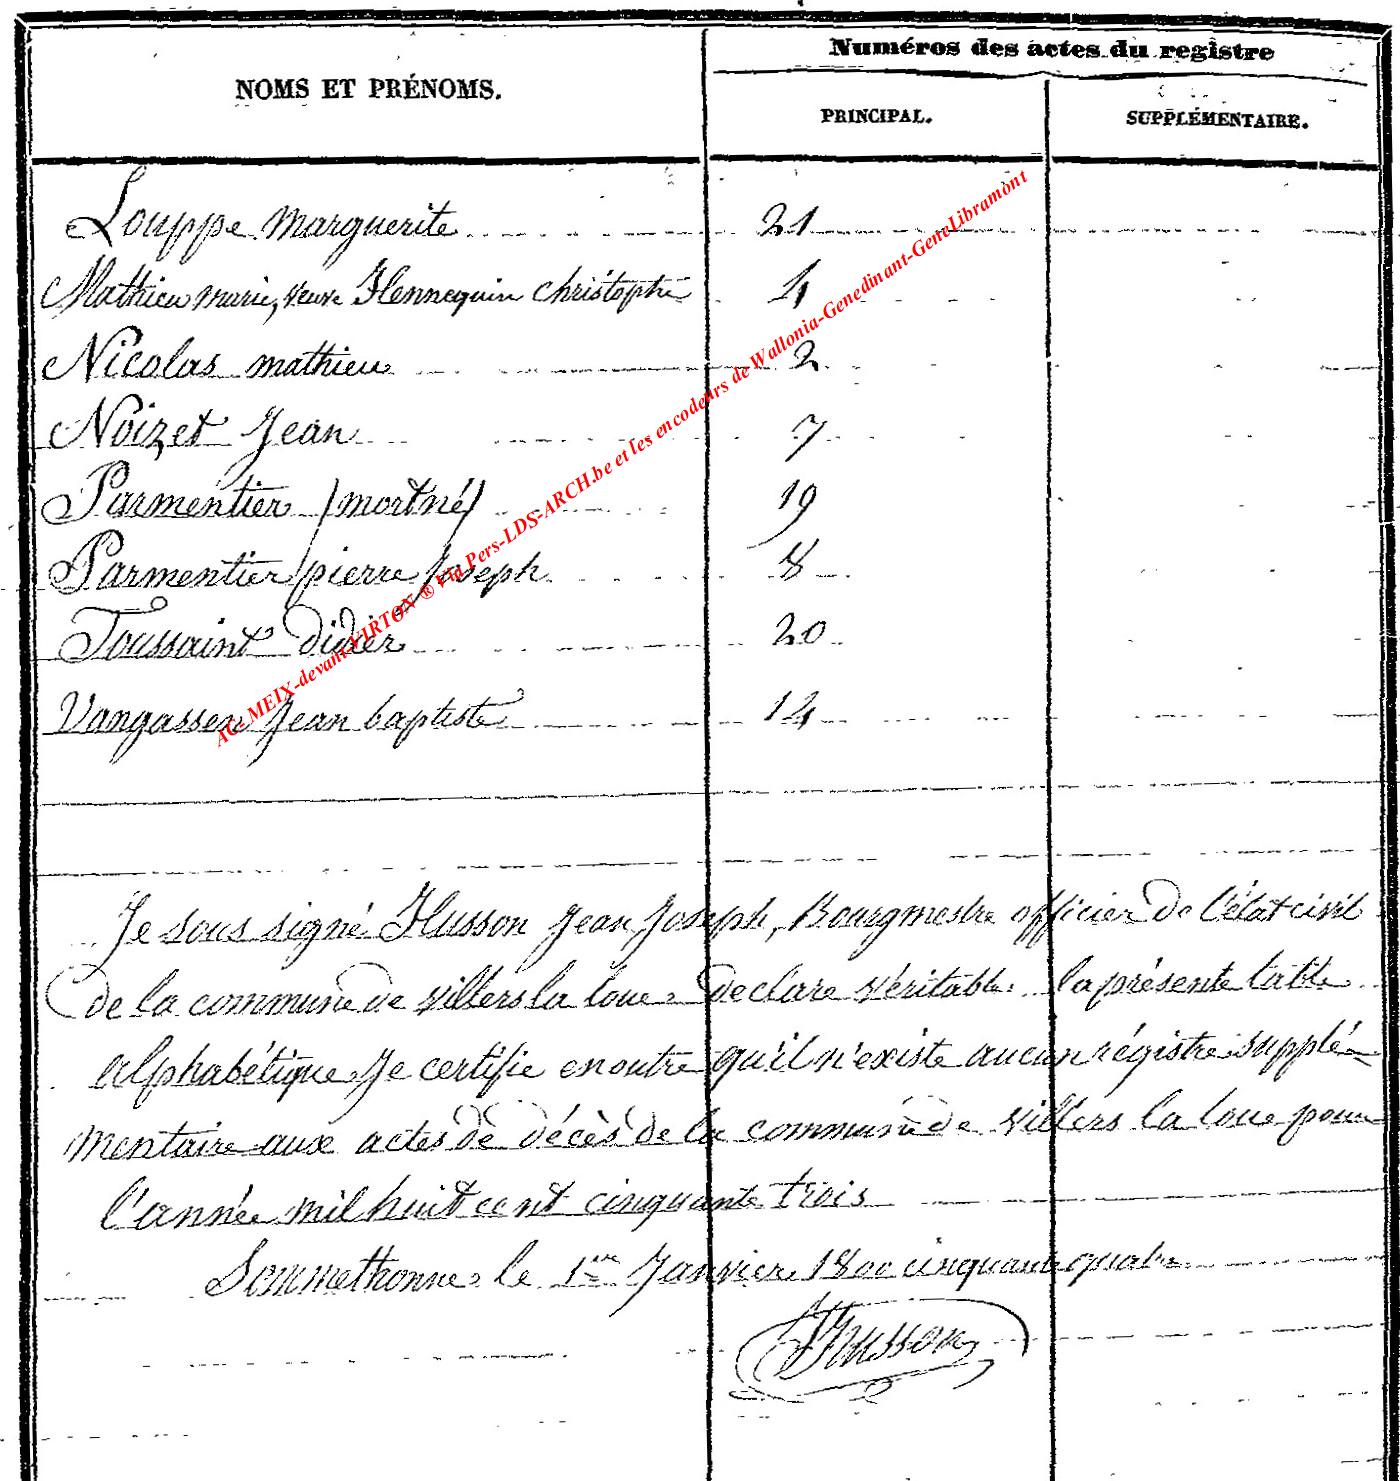 Numéros des actes du registre
NOMS ET PRÉNOMS.
PRINCIPAL.
SUPPLÉMENTAIRE.
Louppe Marguerite 21
Mathieu Marie, veuve Hennequin Christophe 4
Nicolas Mathieu 2
Noizet Jean 7
Parmentier (mortné) 19
Parmentier pierre Joseph 8
Toussaint Didier 20
Vangassen Jean baptiste 14
AC-MEIX-devant-VIRTON ® Via Pers-LDS-ARCH.be et les encodeurs de Wallonia-Genedinant-GeneLibramont
Je sous signé Husson Jean Joseph, Bourgmestre officier de l'état civil
de la commune de villers la loue declare véritable la présente table
alphabétique. Je certifie en outre qu'il n'existe aucun régistre supplé-
mentaire aux actes de décès de la commune de villers la loue pour
l'année mil huit cent cinquante trois
Sommethonne le 1er Janvier 1800 cinquante quatre
JHusson